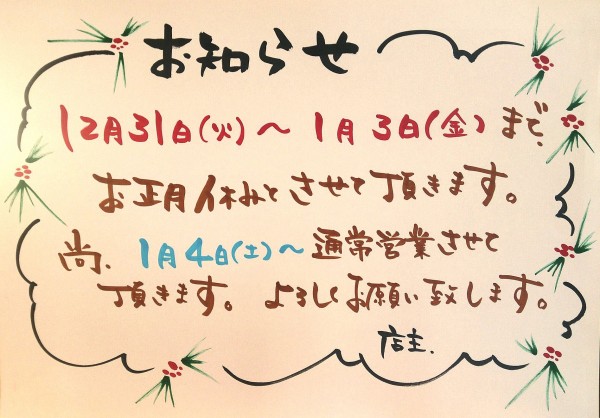 お知らせ
12月31日(火)～1月3日(金)まで、
お正月休みとさせて頂きます。
尚、1月4日(土)～通常営業させて
頂きます。よろしくお願い致します。
店主.